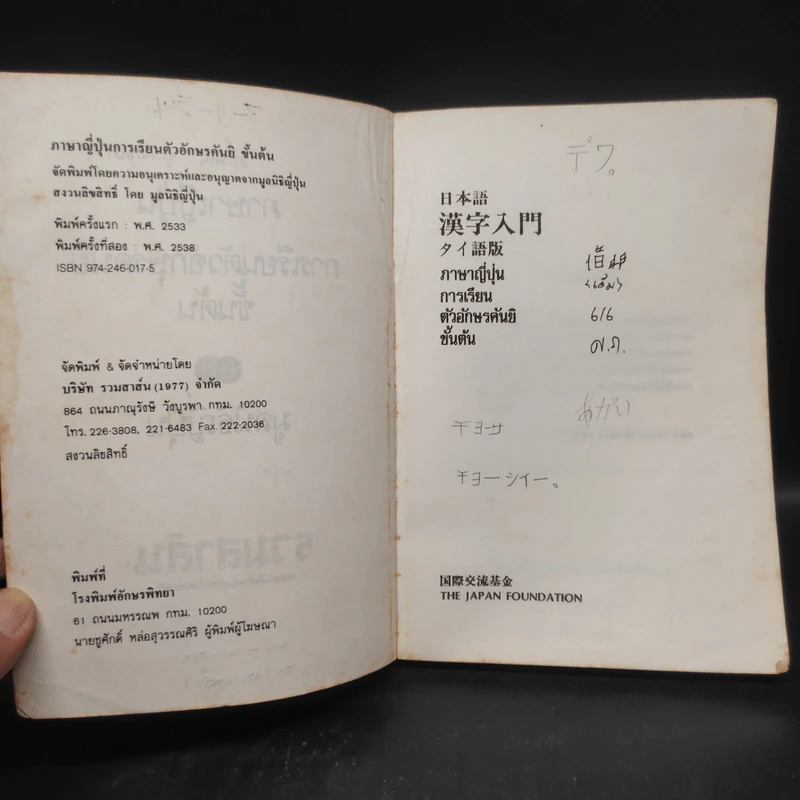 ภาษาญี่ปุ่นการเรียนตัวอักษรคันยิ ขั้นต้น
จัดพิมพ์โดยความอนุเคราะห์และอนุญาตจากมูลนิธิญี่ปุ่น
สงวนลิขสิทธิ์ โดย มูลนิธิญี่ปุ่น
พิมพ์ครั้งแรก : พ.ศ. 2533
พิมพ์ครั้งที่สอง : พ.ศ. 2538
ISBN 974-246-017-5
จัดพิมพ์ & จัดจำหน่ายโดย
บริษัท รวมสาส์น (1977) จำกัด
864 ถนนภาณุรังษี วังบูรพา กทม. 10200
โทร. 226-3808, 221-6483 Fax. 222-2036
สงวนลิขสิทธิ์
พิมพ์ที่
โรงพิมพ์อักษรพิทยา
61 ถนนมหรรณพ กทม. 10200
นายชูศักดิ์ หล่อสุวรรณศิริ ผู้พิมพ์ผู้โฆษณา
デワ。
日本語
漢字入門
タイ語版
ภาษาญี่ปุ่น
การเรียน
ตัวอักษรคันยิ
ขั้นต้น
6/6
あがい
チヨーサ
チヨーシイー。
国際交流基金
THE JAPAN FOUNDATION